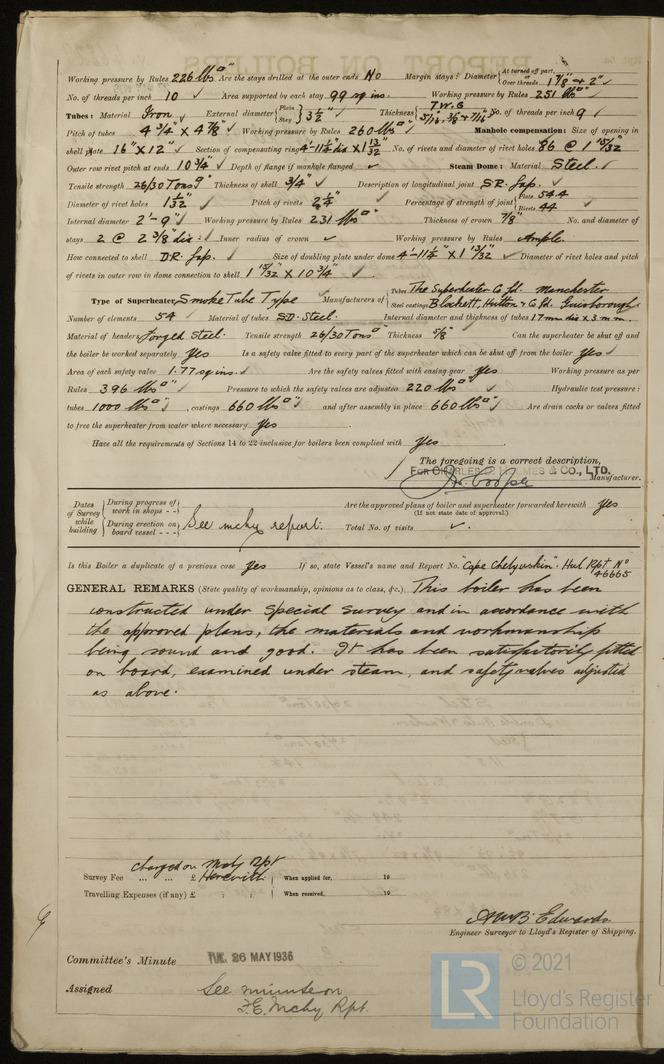 Working pressure by Rules 226 lbs □" Are the stays drilled at the outer ends No Margin stays: Diameter { At turned off part, Over threads 1 7/8" + 2"
No. of threads per inch 10 Area supported by each stay 99 sq ins. Working pressure by Rules 251 lbs □"
Tubes: Material Iron External diameter { Plain Stay } 3 1/2" Thickness { 7 W.G. 5/16", 3/8" + 7/16" No. of threads per inch 9
Pitch of tubes 4 3/4" x 4 7/8" Working pressure by Rules 260 lbs □" Manhole compensation: Size of opening in
shell plate 16" x 12" Section of compensating ring 4'-11 1/2" dia x 1 13/32" No. of rivets and diameter of rivet holes 86 @ 1 15/32"
Outer row rivet pitch at ends 10 3/4" Depth of flange if manhole flanged Steam Dome: Material Steel.
Tensile strength 26/30 Tons □" Thickness of shell 3/4" Description of longitudinal joint S.R. Lap.
Diameter of rivet holes 1 1/32" Pitch of rivets 2 1/4" Percentage of strength of joint { Plate 54.4 Rivets 44
Internal diameter 2'-9" Working pressure by Rules 231 lbs □" Thickness of crown 7/8" No. and diameter of
stays 2 @ 2 3/8" dia: Inner radius of crown Working pressure by Rules Ample.
How connected to shell D.R. Lap. Size of doubling plate under dome 4'-11 1/2" x 1 13/32" Diameter of rivet holes and pitch
of rivets in outer row in dome connection to shell 1 15/32" x 10 3/4".
Type of Superheater Smoke Tube Type Manufacturers of { Tubes The Superheater Co Ld. Manchester
Steel castings Blackett, Hutton & Co Ld. Guisborough
Number of elements 54 Material of tubes S.D. Steel. Internal diameter and thickness of tubes 17 mm dia x 3 m.m.
Material of headers Forged Steel. Tensile strength 26/30 Tons □" Thickness 5/8" Can the superheater be shut off and
the boiler be worked separately Yes Is a safety valve fitted to every part of the superheater which can be shut off from the boiler yes
Area of each safety valve 1.77 sq ins. Are the safety valves fitted with easing gear Yes Working pressure as per
Rules 396 lbs □" Pressure to which the safety valves are adjusted 220 lbs □" Hydraulic test pressure:
tubes 1000 lbs □", castings 660 lbs □" and after assembly in place 660 lbs □" Are drain cocks or valves fitted
to free the superheater from water where necessary Yes
Have all the requirements of Sections 14 to 22 inclusive for boilers been complied with Yes
The foregoing is a correct description,
FOR CHARLES D. HOLMES & CO., LTD.
Manufacturer.
Dates of Survey while building { During progress of work in shops - - During erection on board vessel - - } See mchy report. Are the approved plans of boiler and superheater forwarded herewith Yes
(If not state date of approval.)
Total No. of visits
Is this Boiler a duplicate of a previous case Yes If so, state Vessel's name and Report No. "Cape Chelyuskin". Hul Rpt No 46665
GENERAL REMARKS (State quality of workmanship, opinions as to class, &c.) This boiler has been
constructed under Special Survey and in accordance with
the approved plans, the materials and workmanship
being sound and good. It has been satisfactorily fitted
on board, examined under steam, and safety valves adjusted
as above.
Survey Fee ... ... £ charged on Mchy Rpt Herewith When applied for, 19
Travelling Expenses (if any) £ : : When received, 19
A.W.B. Edwards
Engineer Surveyor to Lloyd's Register of Shipping.
Committee's Minute TUE. 26 MAY 1936
Assigned See minute on
F.E. Mchy Rpt.
LR © 2021
Lloyd's Register
Foundation